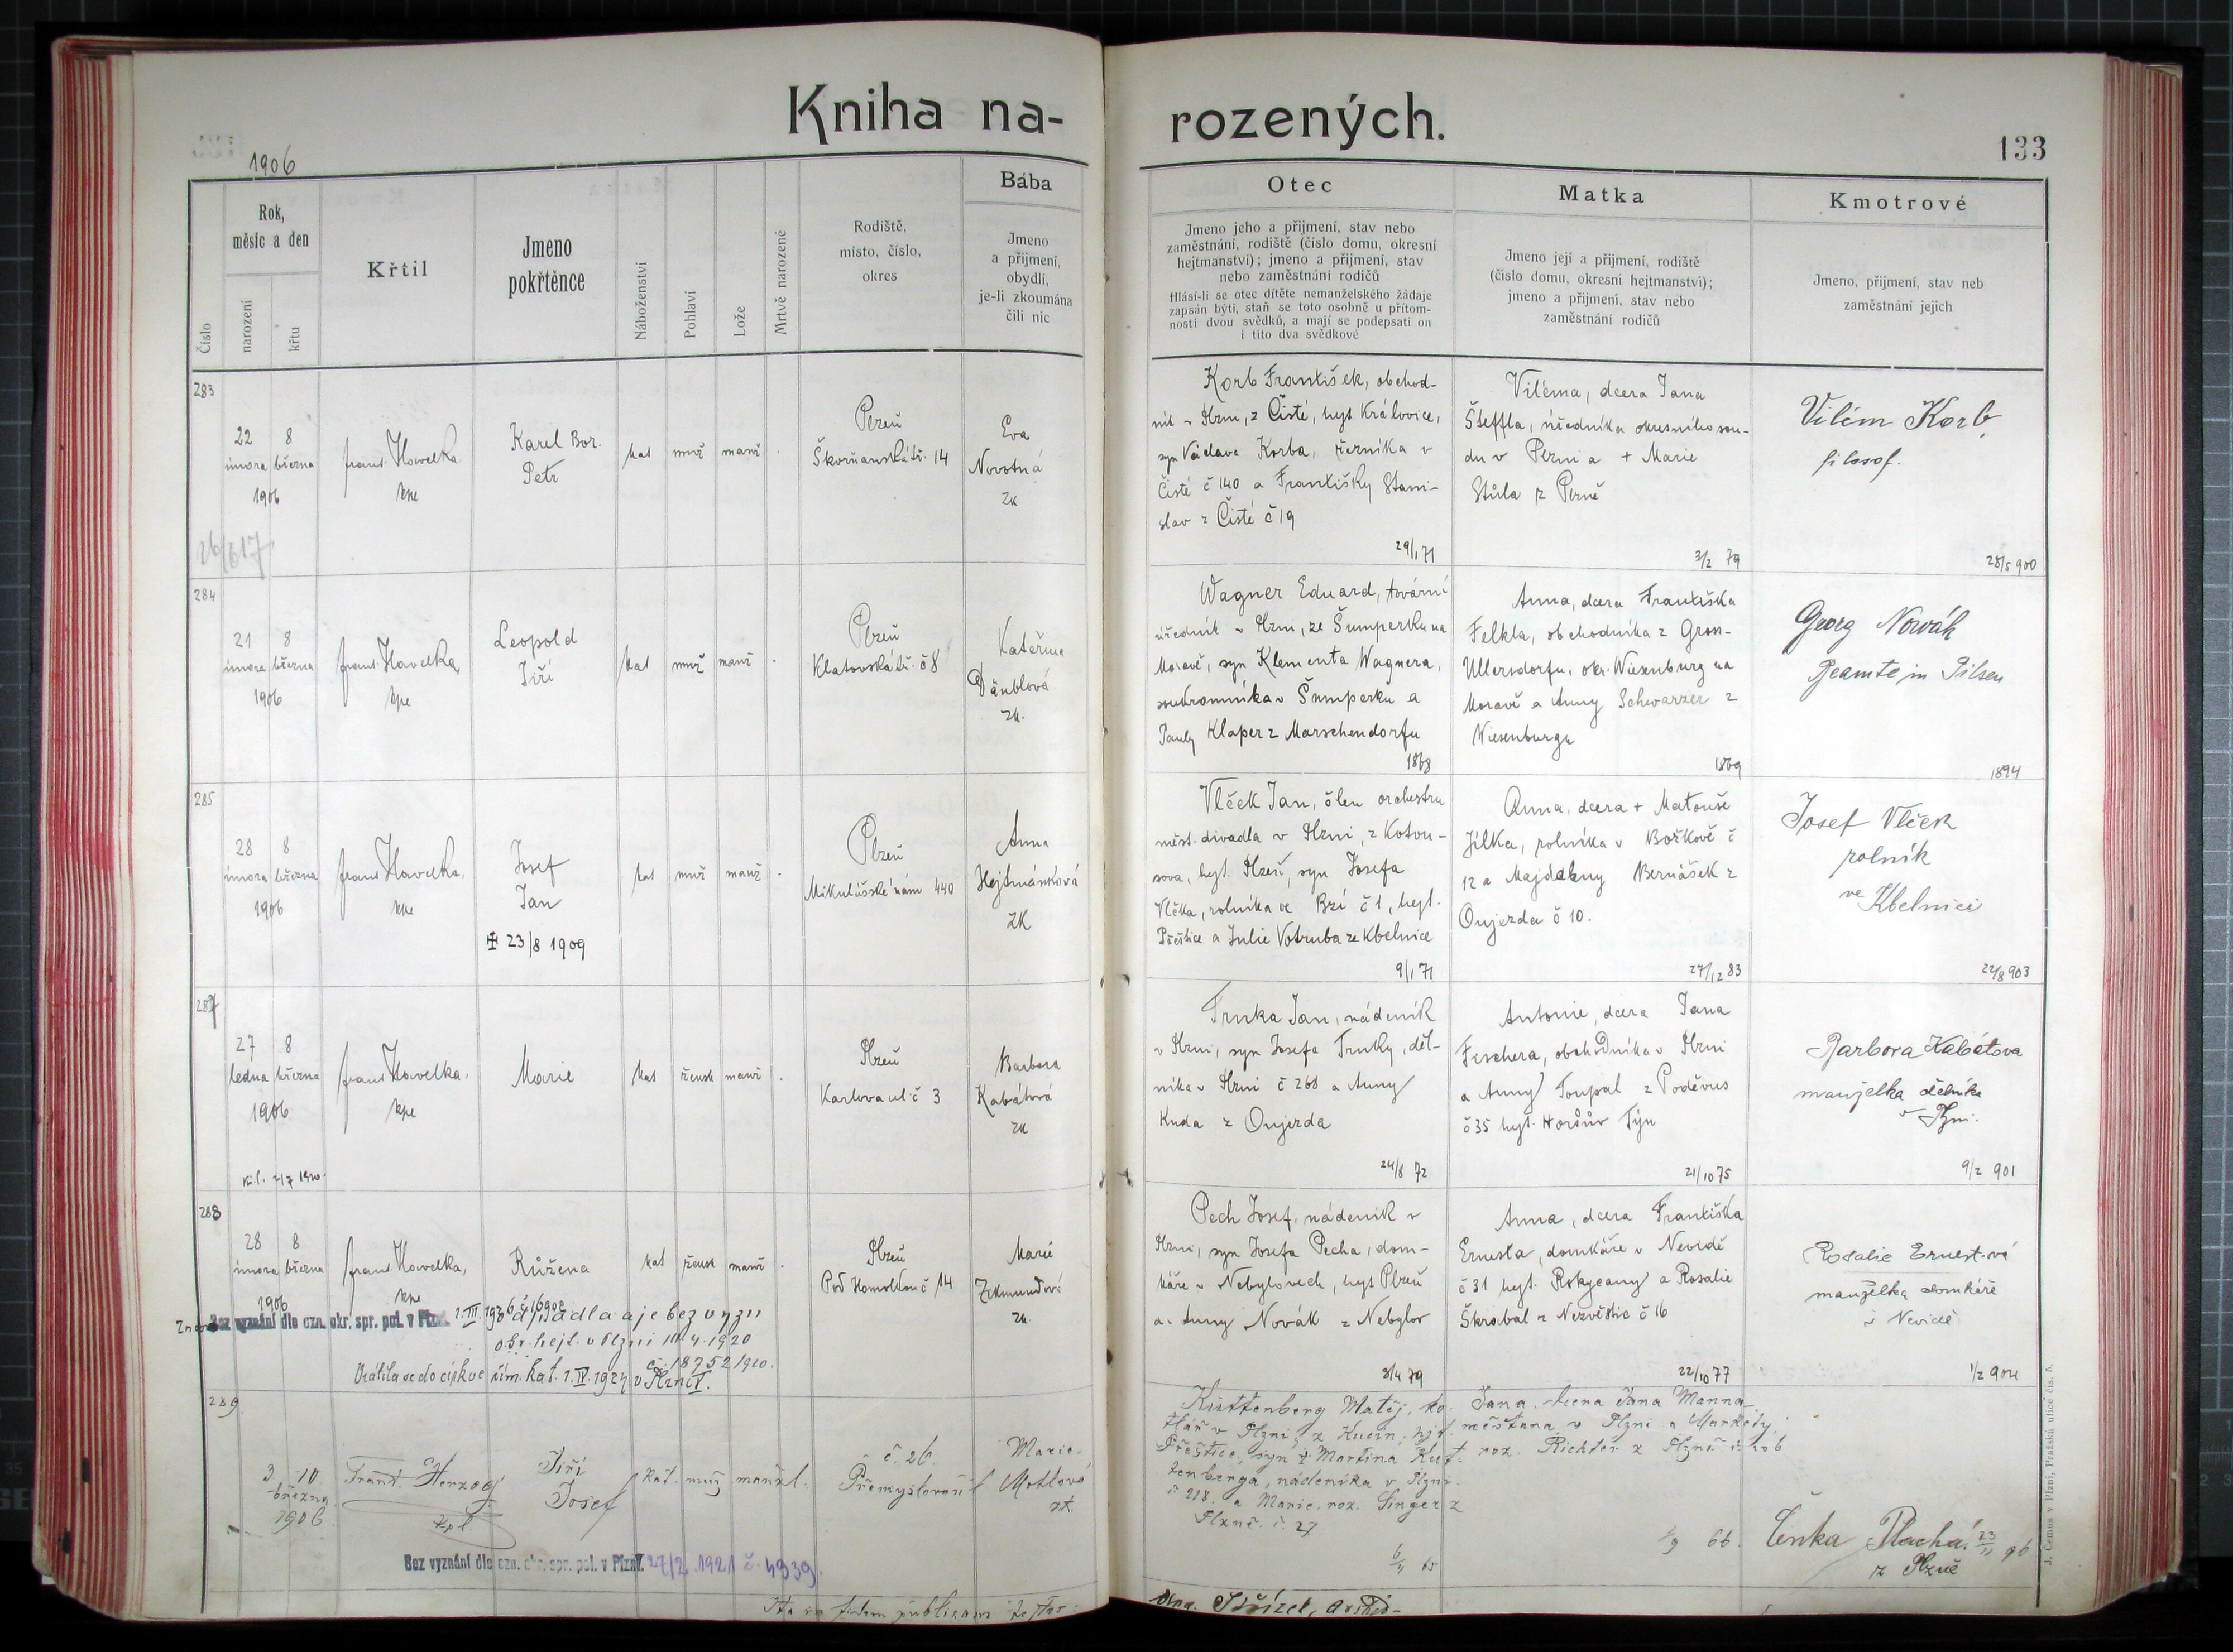 Kniha na-
rozených.
133
1906
Číslo
Rok,
měsíc a den
narození
křtu
Křtil
Jmeno
pokřtěnce
Náboženství
Pohlaví
Lože
Mrtvě narozené
Rodiště,
místo, číslo,
okres
Bába
Jmeno
a přijmení,
obydlí,
je-li zkoumána
čili nic
Otec
Jmeno jeho a přijmení, stav nebo
zaměstnání, rodiště (číslo domu, okresní
hejtmanství); jmeno a přijmení, stav
nebo zaměstnání rodičů
Hlásí-li se otec dítěte nemanželského žádaje
zapsán býti, staň se toto osobně u přítom-
nosti dvou svědků, a mají se podepsati on
i tito dva svědkové
Matka
Jmeno její a přijmení, rodiště
(číslo domu, okresní hejtmanství);
jmeno a přijmení, stav nebo
zaměstnání rodičů
Kmotrové
Jmeno, přijmení, stav neb
zaměstnání jejich
283
22 8
února března
1906
26/617
frant. Havelka
kpe
Karel Bor.
Petr
kat muž manž
Plzeň
Škorňanská tř. 14
Eva
Novotná
zk
Korb František, obchod-
ník v Plzni, z Čisté, hejt Královice,
syn Václava Korba, řezníka v
Čisté č 140 a Františky Stani-
slav z Čisté č 19
29/1 71
Viléma, dcera Jana
Šteffla, úředníka okresního sou-
du v Plzni a + Marie
Stůla z Plzně
3/2 79
Vilém Korb
filosof.
28/5 900
284
21 8
února března
1906
frant. Havelka,
kpe
Leopold
Jiří
kat muž manž
Plzeň
Klatovská tř. č 8
Kateřina
Däublová
zk.
Wagner Eduard, tovární
úředník v Plzni, ze Šumperku na
Moravě, syn Klementa Wagnera,
soukromníka v Šumperku a
Pauly Klaper z Marschendorfu
1868
Anna, dcera Františka
Felkla, obchodníka z Gross-
Ullersdorfu, okr. Wiesenburg na
Moravě a Anny Schwarzer z
Wiesenburgu
1869
Georg Nowák
Beamte in Pilsen
1894
285
28 8
února března
1906
frant Havelka,
kpe
Josef
Jan
✠ 23/8 1909
kat muž manž
Plzeň
Mikulášské nám 440
Anna
Hejtmánková
zk
Vlček Jan, člen orchestru
měst. divadla v Plzni, z Kotou-
sova, hejt. Plzeň, syn Josefa
Vlčka, rolníka ve Bzí č 1, hejt.
Přeštice a Julie Votruba ze Kbelnice
9/1 71
Anna, dcera + Matouše
Jílka, rolníka v Božkově č
12 a Majdaleny Bernášek z
Oujezda č 10.
27/12 83
Josef Vlček
rolník
ve Kbelnici
22/8 903
287
27 8
ledna března
1906
frant Havelka,
kpe
Marie
kat žensk manž
Plzeň
Karlova ul. č 3
Barbora
Kabátová
zk
Trnka Jan, nádeník
v Plzni, syn Josefa Trnky, děl-
níka v Plzni č 268 a Anny
Kuda z Oujezda
24/8 72
Antonie, dcera Jana
Fischera, obchodníka v Plzni
a Anny Toupal z Poděvus
č 35 hejt. Horšův Týn
21/10 75
Barbora Kabátova
manželka dělníka
v Plzni.
9/2 901
288
28 8
února března
1906
frant Havelka,
kpe
Růžena
kat žensk manž
Plzeň
Pod Homolkou č 14
Marie
Zikmundová
zk.
Pech Josef, nádeník v
Plzni, syn Josefa Pecha, dom-
káře v Nebylovech, hejt Plzeň
a Anny Novák z Nebylov
3/4 79
Anna, dcera Františka
Ernesta, domkáře v Nevidě
č 31 hejt. Rokycany a Rosalie
Škrabal z Nezvěstic č 16
22/10 77
Rosalie Ernestová
manželka domkáře
v Nevidě
1/2 904
Znova Bez vyznání dle ozn. okr. spr. pol. v Plzni 1. III. 1926
odpadla a je bez vyzn
okr. hejt. v Plzni 10.4.1920
č. 18752 1920.
Vrátila se do církve řím. kat. 1. IV. 1924 v Plzni
289
3 10
března
1906
Frant. Herzog
kpl
Jiří
Josef
kat. muž manžl.
č. 26.
Přemyslova ul
Marie
Mottlová
zk.
Kuttenberg Matěj, ko-
tlář v Plzni, z Kucín, hjt.
Přeštice, syn + Martina Kut-
tenberga, nádeníka v Plzni
č 218. a Marie, roz. Singer z
Plzně. č. 27
Jana, dcera Jana Manna,
měšťana v Plzni a Markéty,
roz. Richter z Plzně
66.
Čeňka Plachá
z Plzně
23/11 96
Bez vyznání dle ozn. okr. spr. pol. v Plzni. 27/2 1921 č. 4939.
J. Černos v Plzni, Pražská ulice čís. 5.